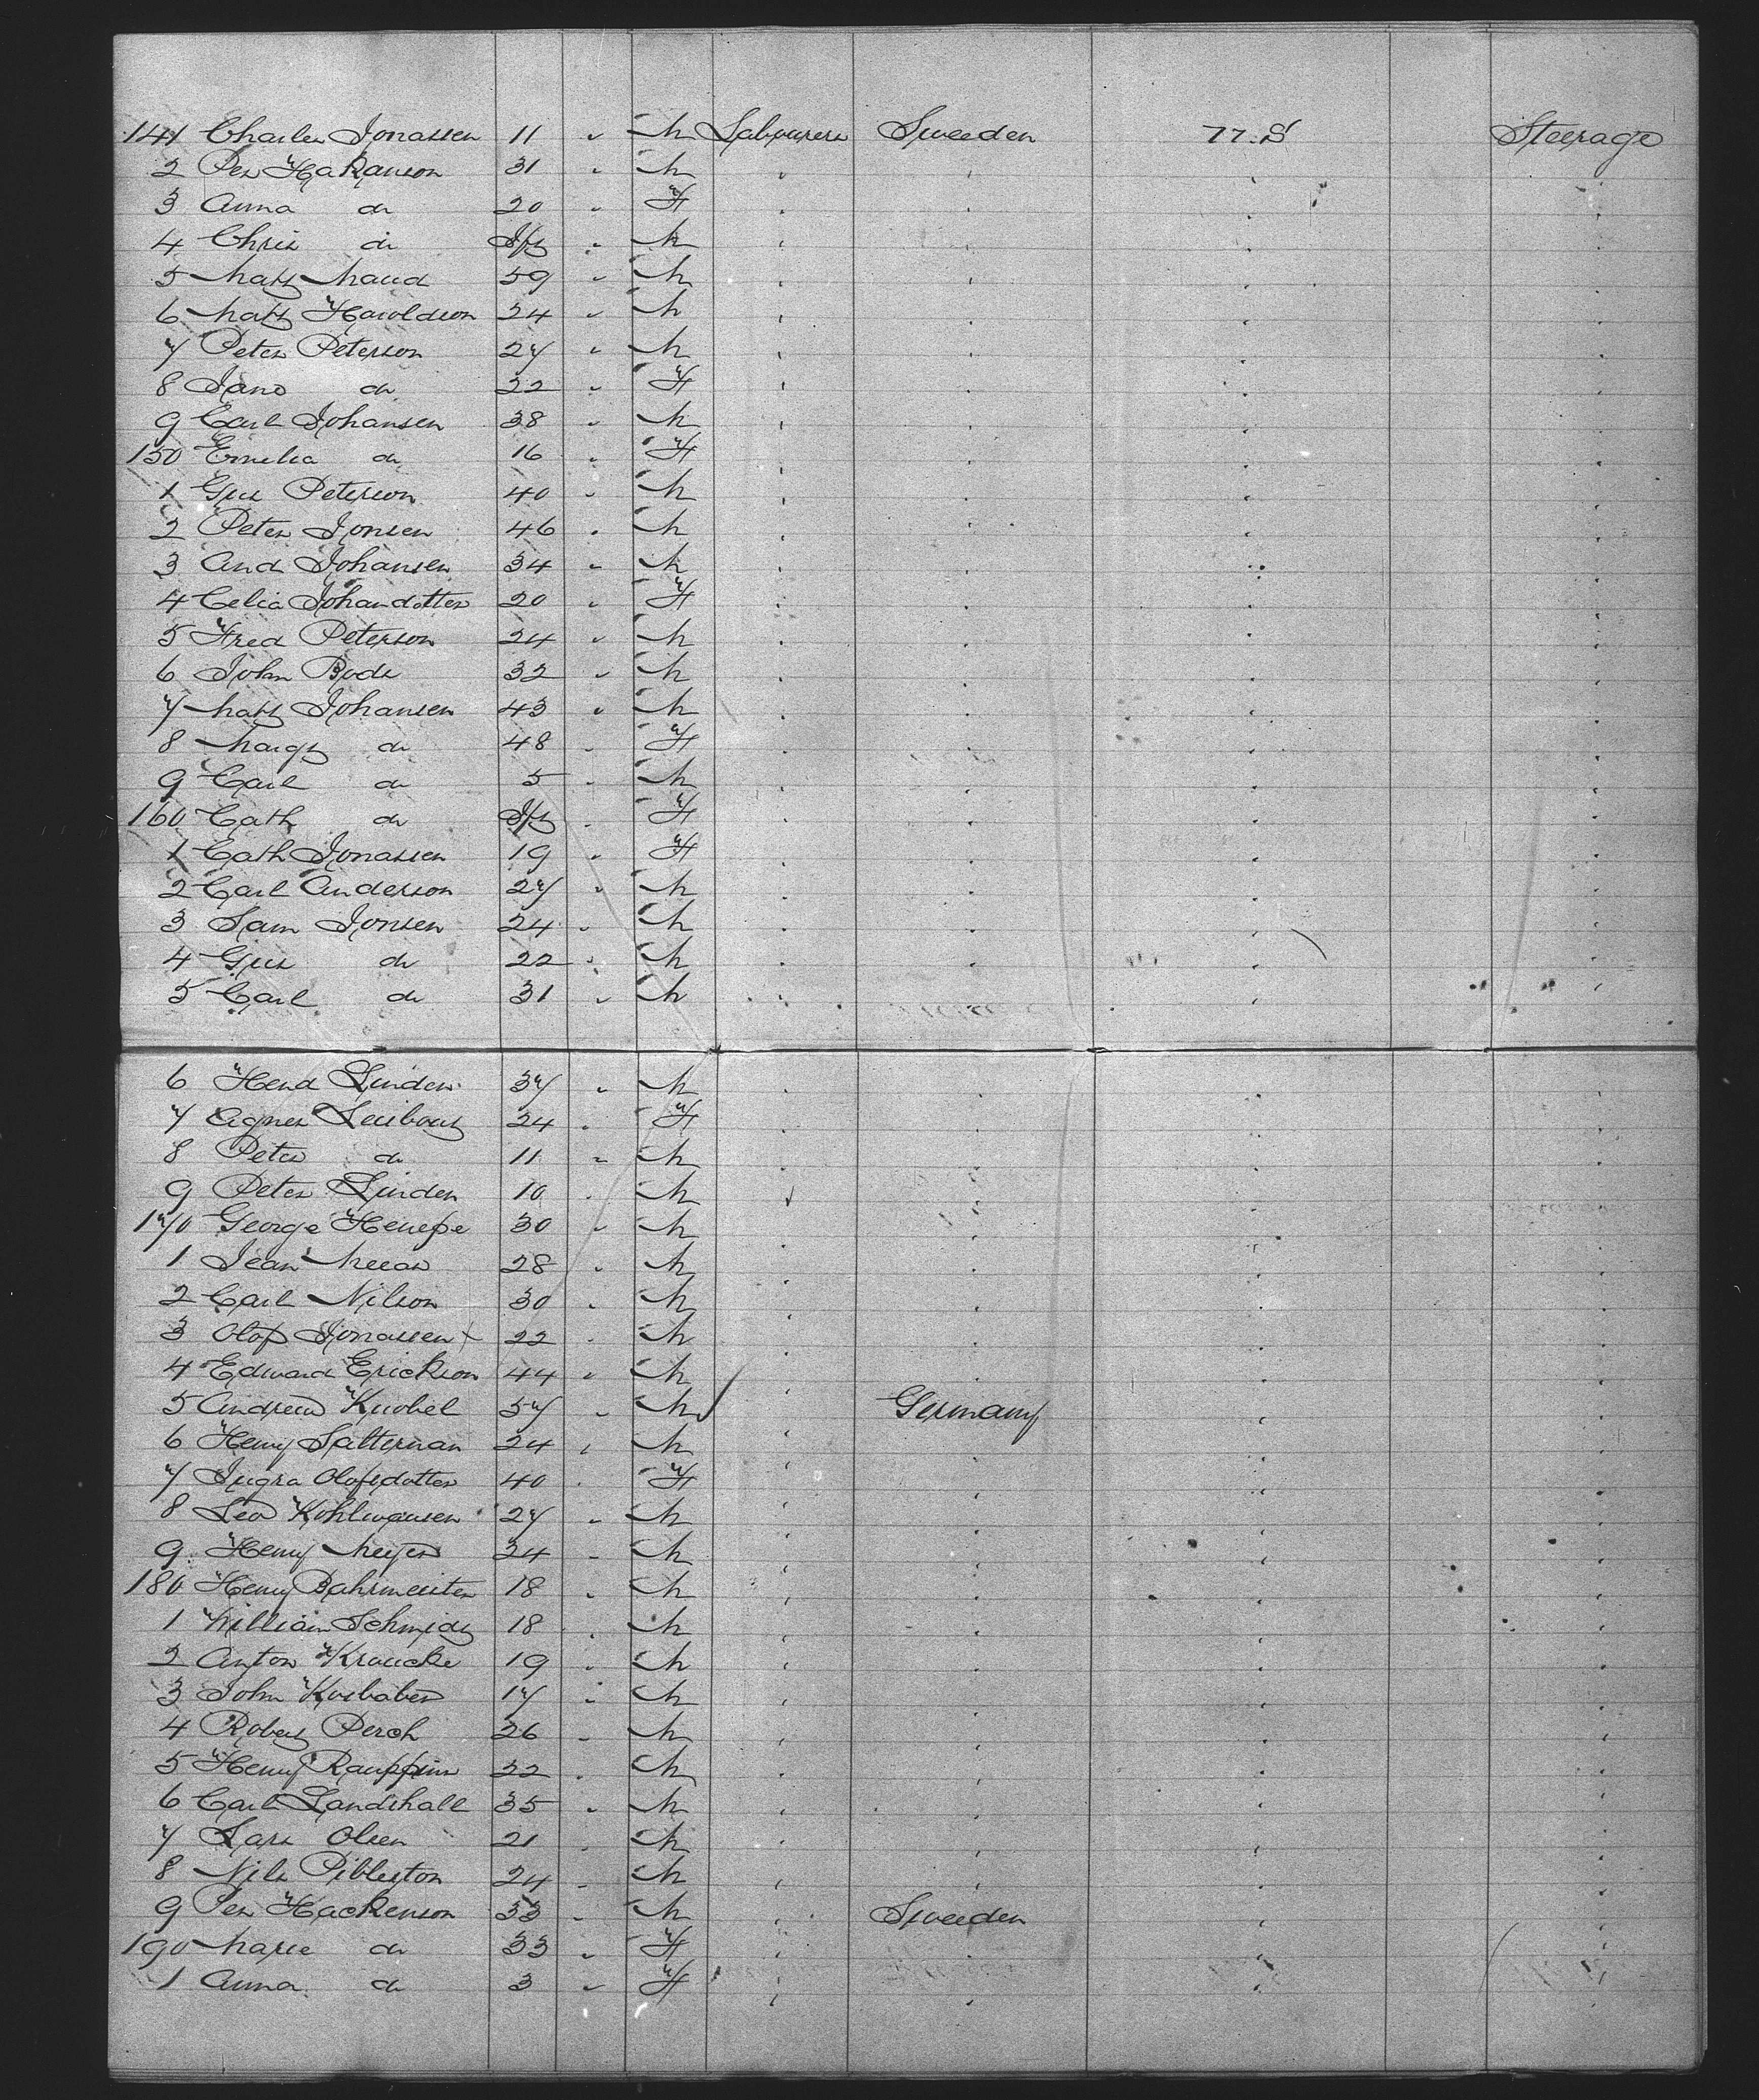 141 Charles Jonassen 11 " M Labourers Sweeden U.S Steerage
2 Per Hakanson 31 " M " " " "
3 Anna do 20 " F " " " "
4 Chris do Inft " M " " " "
5 Matt 59 " M " " " "
6 Matt Haroldson 24 " M " " " "
7 Peter Peterson 27 " M " " " "
8 Jane do 22 " F " " " "
9 Carl Johansen 38 " M " " " "
150 Emelia do 16 " F " " " "
1 Gus Peterson 40 " M " " " "
2 Peter Jonsen 46 " M " " " "
3 And Johansen 34 " M " " " "
4 Celia Johandotter 20 " F " " " "
5 Fred Peterson 24 " M " " " "
6 John Bode 32 " M " " " "
7 Matt Johansen 43 " M " " " "
8 Margt do 48 " F " " " "
9 Carl do 5 " M " " " "
160 Cath do Inft " F " " " "
1 Cath Jonassen 19 " F " " " "
2 Carl Anderson 27 " M " " " "
3 Sam Jonsen 24 " M " " " "
4 Gus do 22 " M " " " "
5 Carl do 31 " M " " " "
6 Hend Linden 37 " M " " " "
7 Agnes 24 " F " " " "
8 Peter do 11 " M " " " "
9 Peter Linden 10 " M " " " "
170 George 30 " M " " " "
1 Jean 28 " M " " " "
2 Carl Nilson 30 " M " " " "
3 Olof Jonassen 22 " M " " " "
4 Edward Erickson 44 " M " " " "
5 Andrew Knobel 57 " M " Germany " "
6 Henry Salterman 24 " M " " " "
7 Ingra Olofsdotter 40 " F " " " "
8 Leo Kohlwausen 27 " M " " " "
9 Henry Meyer 24 " M " " " "
180 Henry Bahrmeister 18 " M " " " "
1 William Schmidt 18 " M " " " "
2 Anton Kraucke 19 " M " " " "
3 John Kosbaber 17 " M " " " "
4 Robert Perch 26 " M " " " "
5 Henry 22 " M " " " "
6 Carl Landshall 35 " M " " " "
7 Lars Olsen 21 " M " " " "
8 Nils Pibleston 24 " M " " " "
9 Per Hackenson 33 " M " Sweeden " "
190 Marie do 33 " F " " " "
1 Anna do 3 " F " " " "